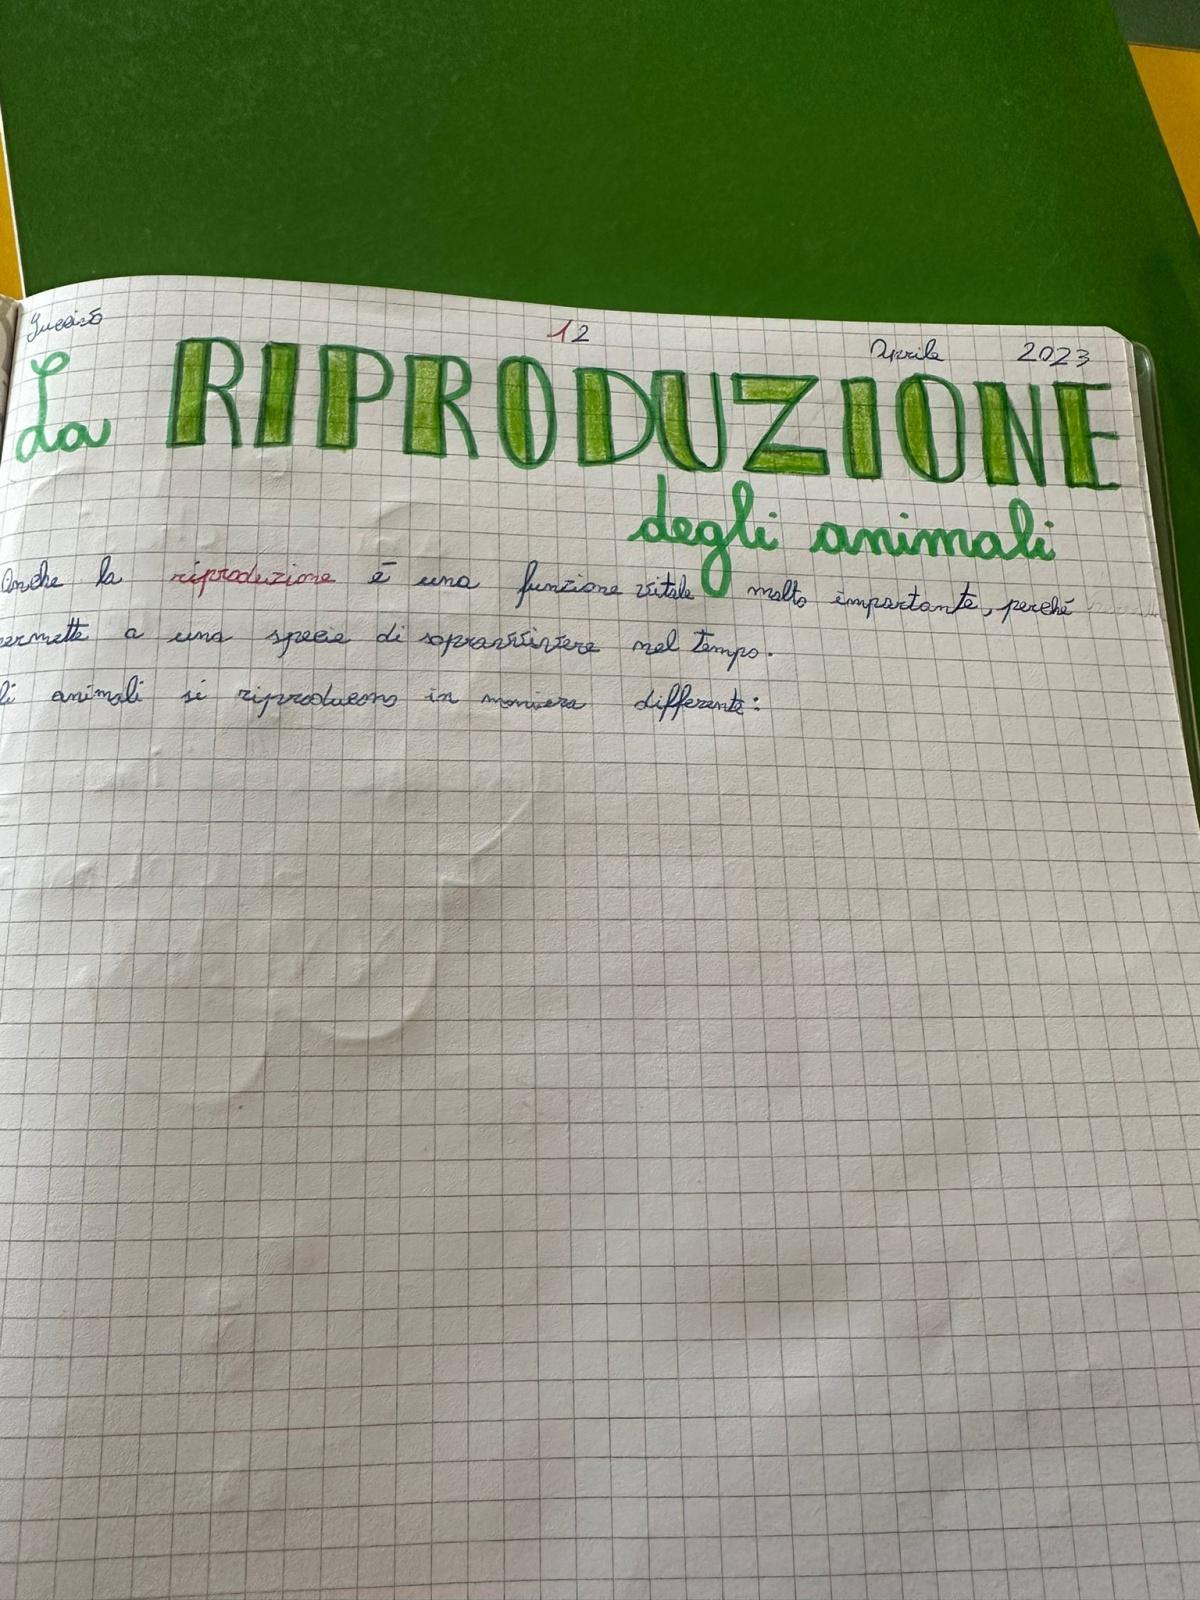 12 Aprile 2023
La RIPRODUZIONE
degli animali
Anche la riproduzione è una funzione vitale molto importante, perché
ermette a una specie di sopravvivere nel tempo.
li animali si riproducono in maniera differente: